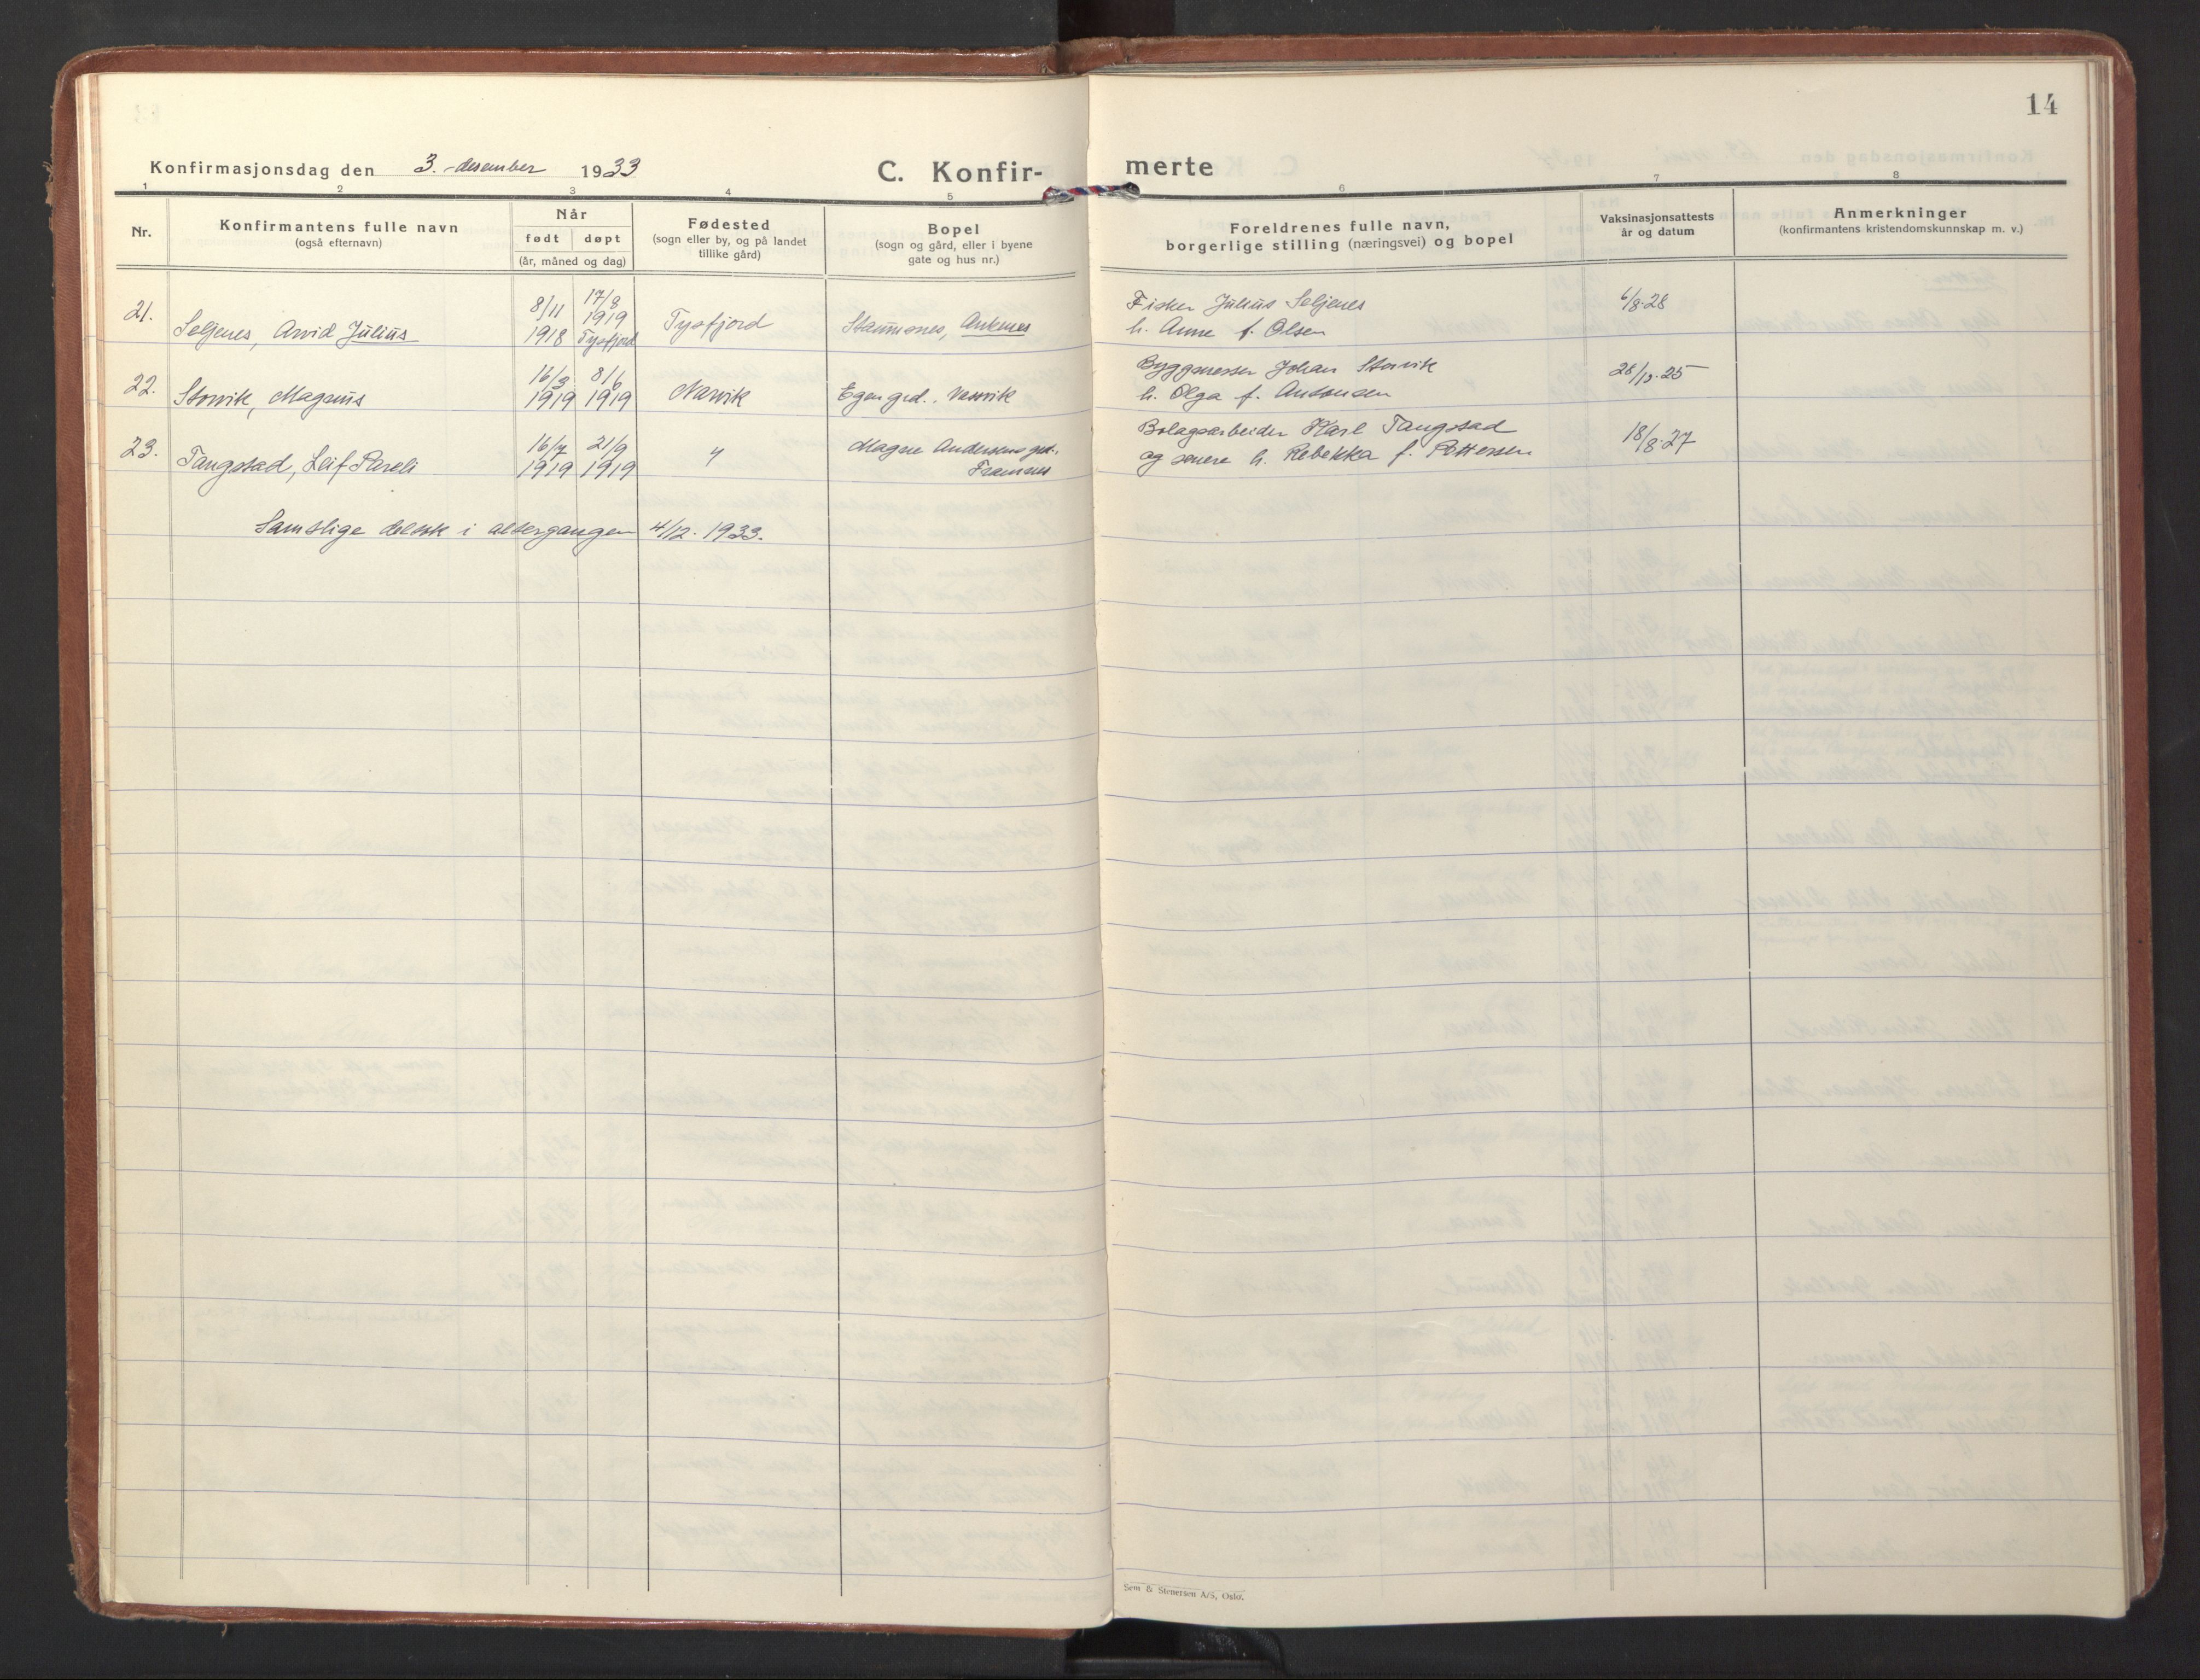 14
Konfirmasjonsdag den 3. desember 1933
C. Konfir-
merte
1 2 3 4 5 6 7 8
Nr.
Konfirmantens fulle navn
(også efternavn)
Når
født døpt
(år, måned og dag)
Fødested
(sogn eller by, og på landet
tillike gård)
Bopel
(sogn og gård, eller i byene
gate og hus nr.)
Foreldrenes fulle navn,
borgerlige stilling (næringsvei) og bopel
Vaksinasjonsattests
år og datum
Anmerkninger
(konfirmantens kristendomskunnskap m. v.)
21. Seljenes, Arvid Julius
8/11 1918
17/8 1919 Tysfjord
Tysfjord
Ankenes
Fisker Julius Seljenes
h. Anne f. Olsen
6/8.28
22. Storvik, Magnus
16/3 1919
8/6 1919
Narvik
Egen grd.,
Byggmester Johan Storvik
h. Olga f. Antonsen
23. Tangstad, Leif Pareli
16/7 1919
21/9 1919
"
Magne Andersens grd.,
Framnes
Bolagsarbeider Karl Tangstad
og h. Rebekka f. Pettersen
18/8.27
Samtlige deltok i altergangen 4/12. 1933.
Sem & Stenersen A/S, Oslo.